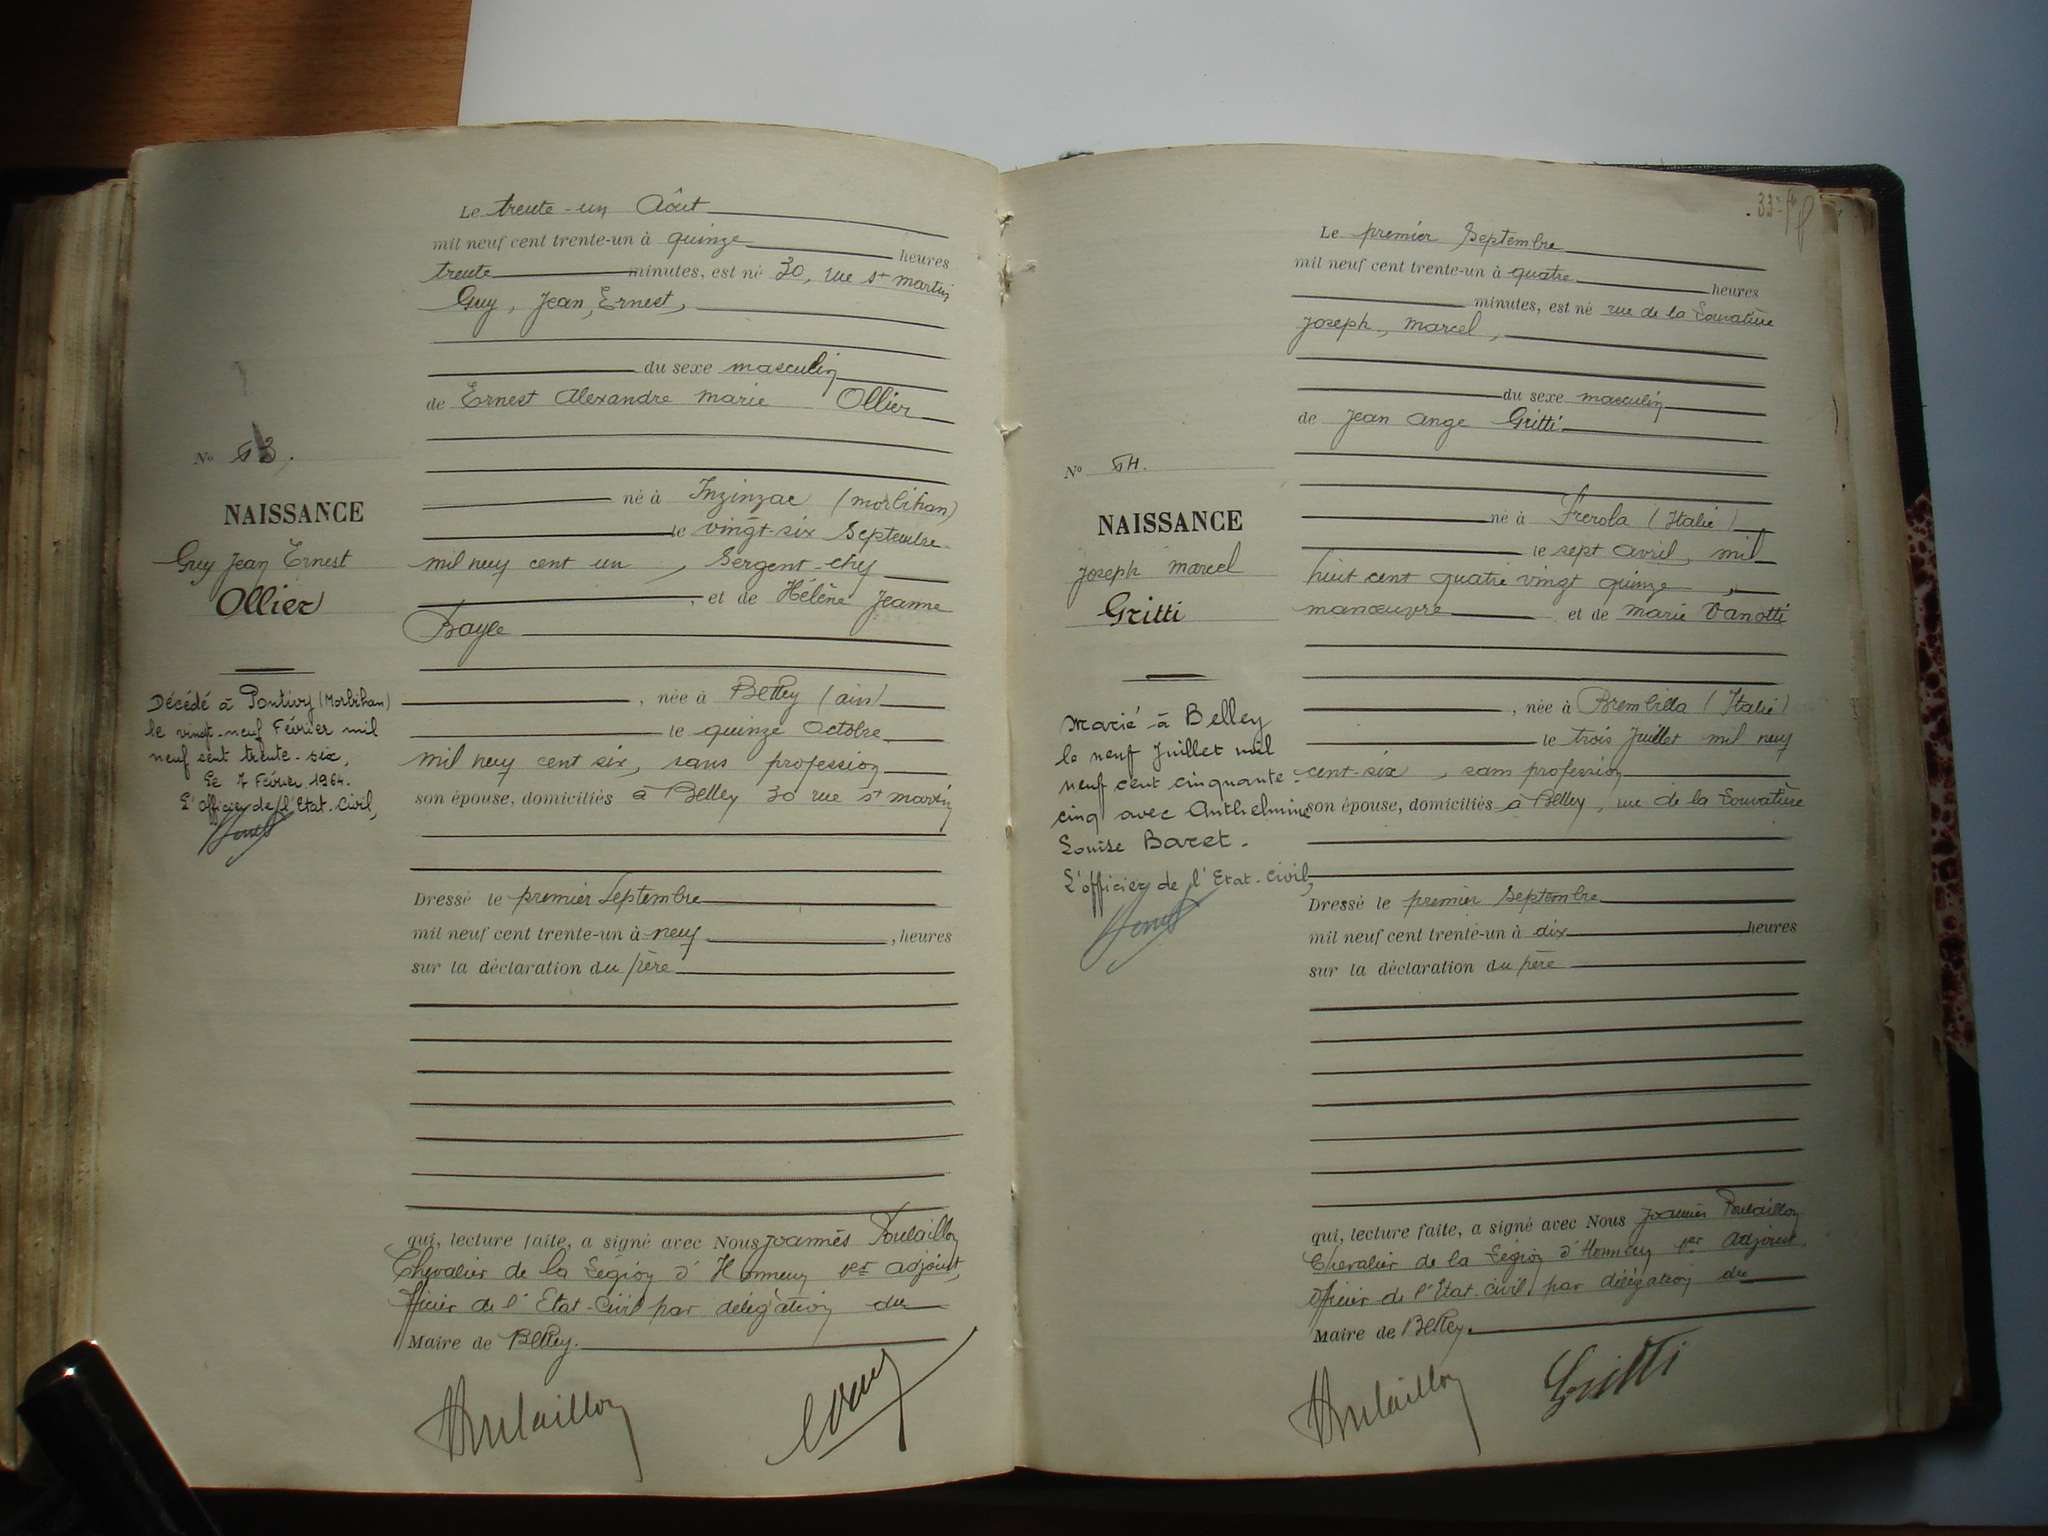 Le trente-un Août
mil neuf cent trente-un à quinze heures
trente minutes, est né 30, rue St martin
Guy, Jean, Ernest,
du sexe masculin
de Ernest Alexandre Marie Ollier
né à Inzinzac (Morbihan)
le vingt-six Septembre
mil neuf cent un, Sergent-chef
, et de Hélène Jeanne
Bayle
, née à Belley (ain)
le quinze Octobre
mil neuf cent six, sans profession
son épouse, domiciliés à Belley 30 rue St martin
Dressé le premier Septembre
mil neuf cent trente-un à neuf , heures
sur la déclaration du père
qui, lecture faite, a signé avec Nous Joannès Poulaillon
Chevalier de la Légion d'Honneur 1er adjoint,
Officier de l'Etat-Civil par délégation du
Maire de Belley.
Poulaillon
No 53.
NAISSANCE
Guy Jean Ernest
Ollier
Décédé à Pontivy (Morbihan)
le vingt-neuf Février mil
neuf cent trente-six,
Le 7 Février 1964.
L'Officier de l'Etat-Civil,
Le premier Septembre
mil neuf cent trente-un à quatre heures
minutes, est né rue de la
Joseph, Marcel,
du sexe masculin
de Jean Ange Gritti
né à Frerola (Italie)
le sept avril, mil
huit cent quatre vingt quinze,
manœuvre et de Marie Vanotti
, née à Brembilla (Italie)
le trois Juillet mil neuf
cent-six, sans profession
son épouse, domiciliés à Belley, rue de la
Dressé le premier Septembre
mil neuf cent trente-un à dix heures
sur la déclaration du père
qui, lecture faite, a signé avec Nous Joannès Poulaillon
Chevalier de la Légion d'Honneur 1er adjoint,
Officier de l'Etat-Civil par délégation du
Maire de Belley.
Poulaillon Gritti
No 54.
NAISSANCE
Joseph Marcel
Gritti
Marié à Belley
le neuf Juillet mil
neuf cent cinquante-
cinq avec Anthelmine
Louise Baret.
L'officier de l'Etat-Civil,